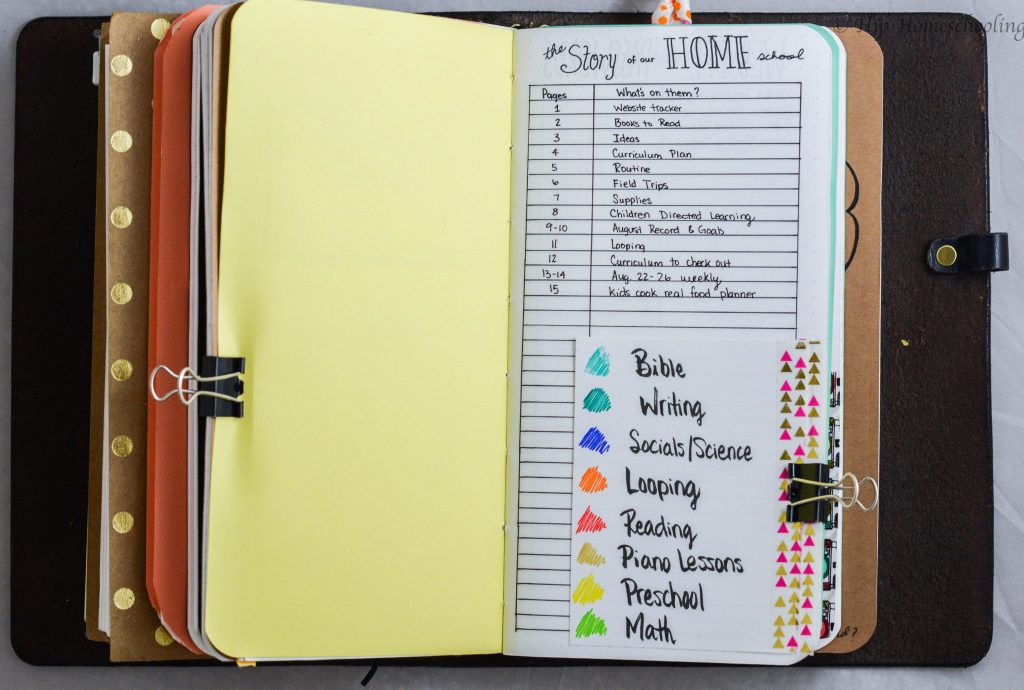 © Hip Homeschooling
the Story of our HOME school
Pages What's on them?
1 Website tracker
2 Books to Read
3 Ideas
4 Curriculum Plan
5 Routine
6 Field Trips
7 Supplies
8 Children Directed Learning
9-10 August Record & Goals
11 Looping
12 Curriculum to check out
13-14 Aug. 22-26 weekly
15 kids cook real food planner
Bible
Writing
Socials/Science
Looping
Reading
Piano Lessons
Preschool
Math